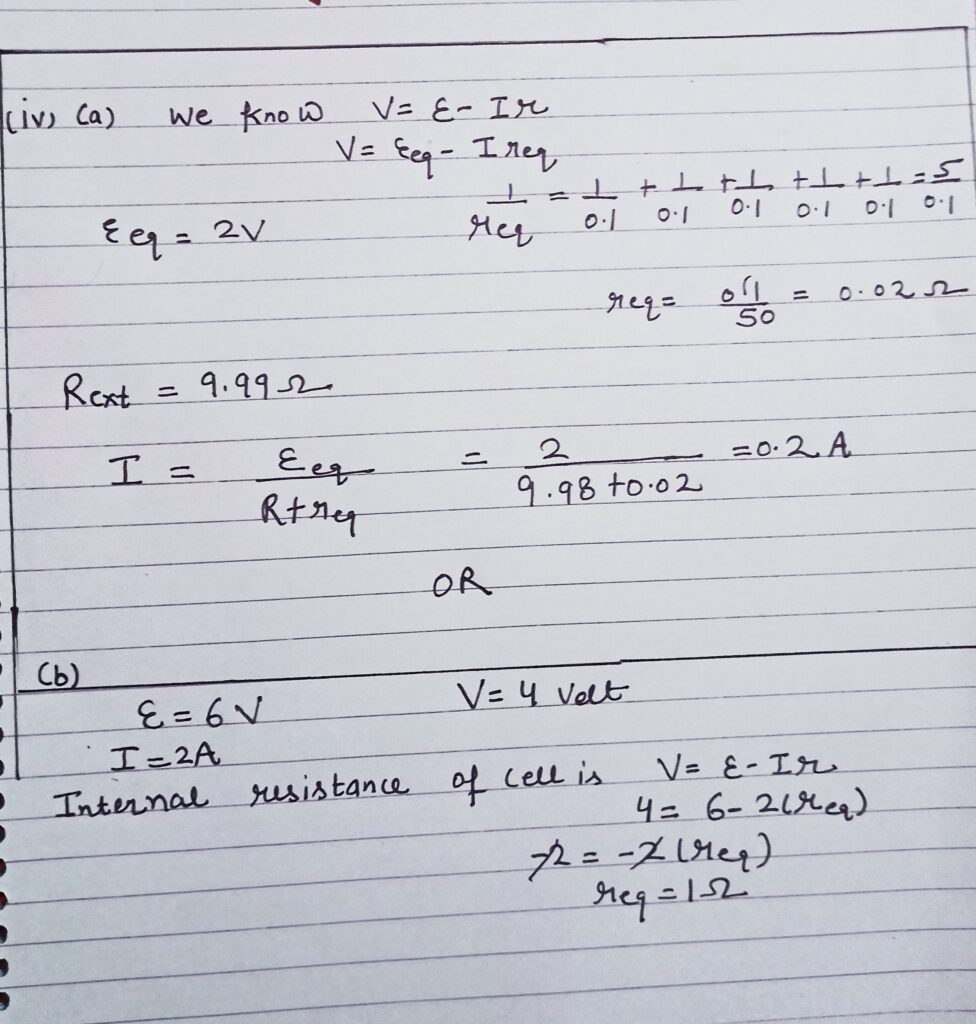 (iv) (a) We know V = Ɛ - Ir
V = Ɛeq - Ireq
1/req = 1/0.1 + 1/0.1 + 1/0.1 + 1/0.1 + 1/0.1 = 5/0.1
Ɛeq = 2V
req = 0.1/50 = 0.02 Ω
Rext = 9.99 Ω
I = Ɛeq/R+req = 2/9.98+0.02 = 0.2 A
OR
(b)
Ɛ = 6 V V = 4 Volt
I = 2A
Internal resistance of cell is V = Ɛ - Ir
4 = 6 - 2(req)
-2 = -2(req)
req = 1Ω